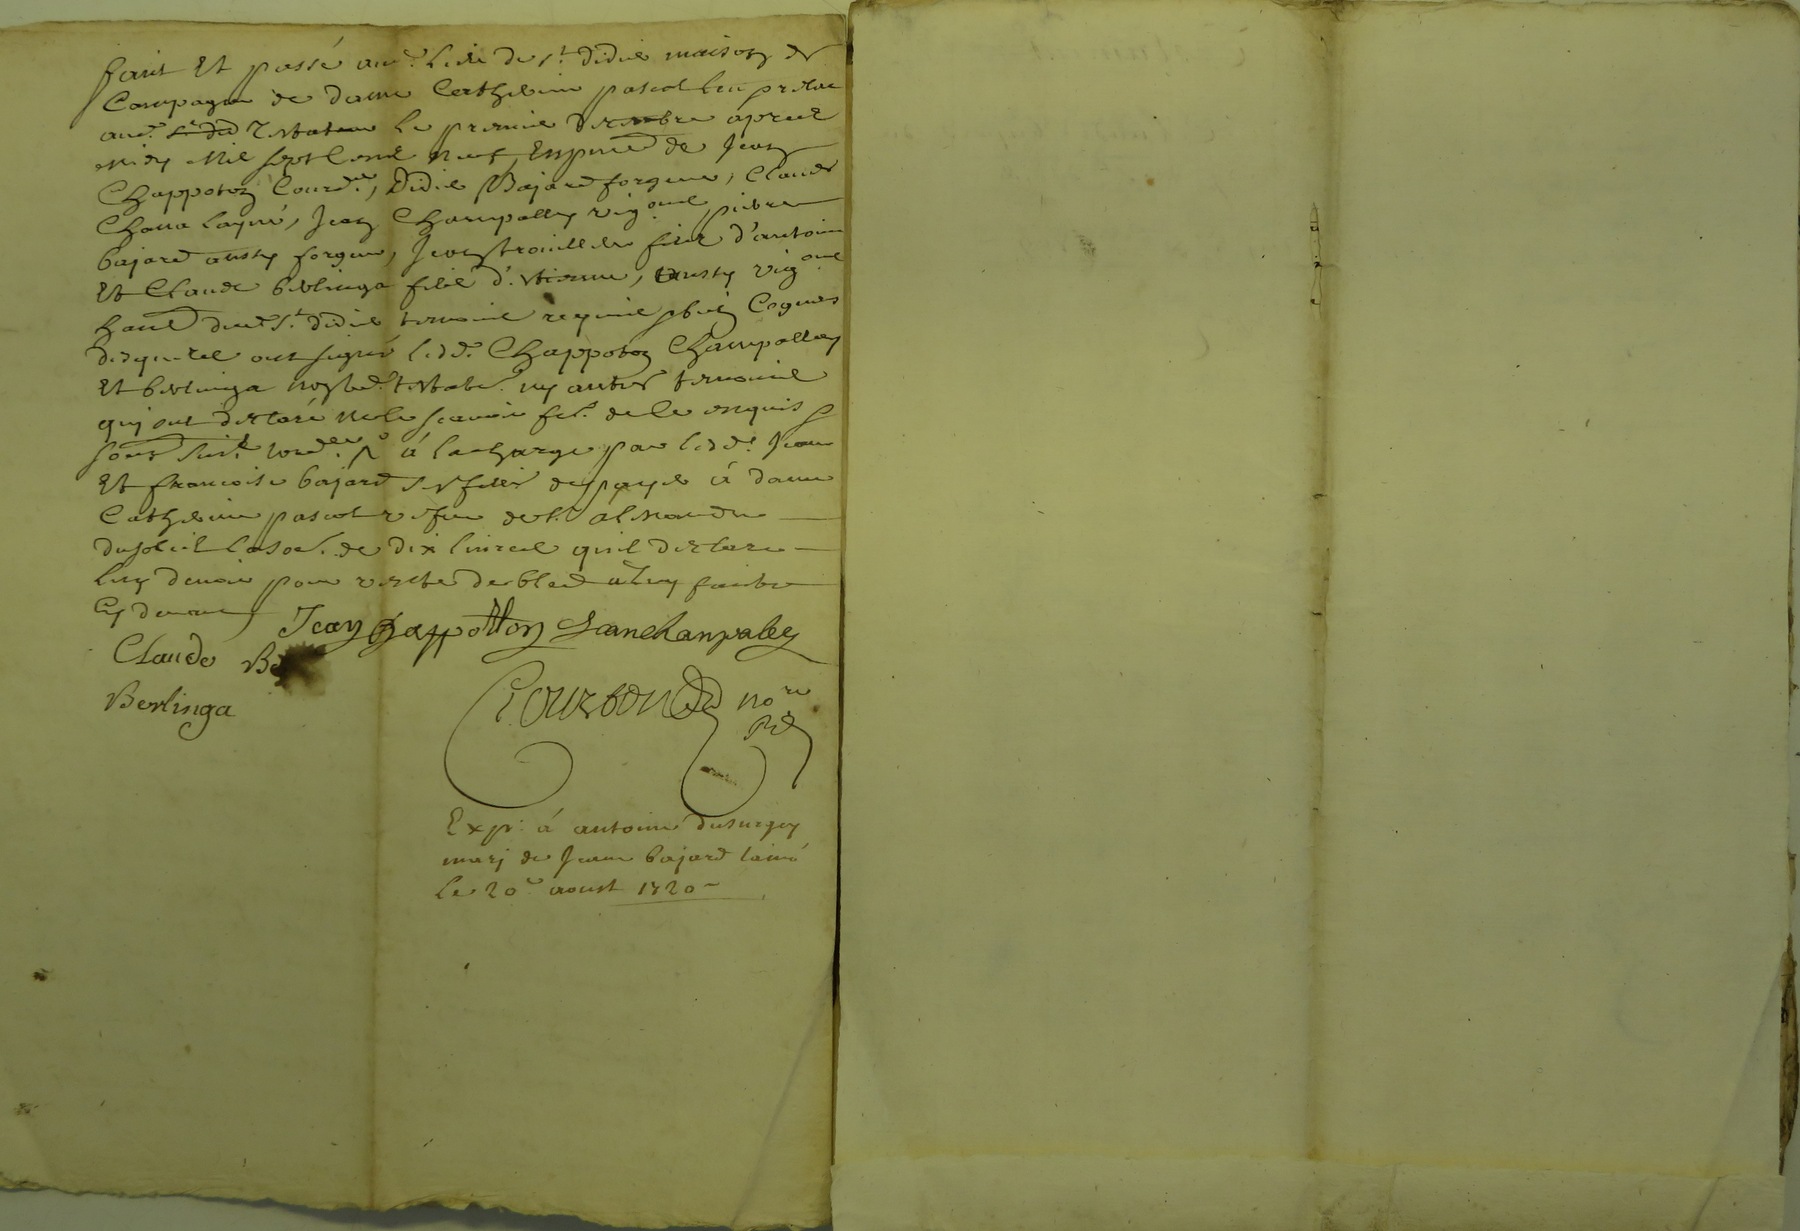 fait Et passé au.t lieu de s.t didie maison de
Campagne de dame Catherine pascal
aud. testateur le premie decembre apres
midy Mil sept Cent neuf, En pnce de Jean
Chappoton Cord.er, Didie Bajard forgeur, Claude
Chana layné, Jean Champalley vig.on, pierre
bajard aussy forgeur, Jean fils d'antoine
Et Claude berlinga fils d'Etienne, aussy vig.on
hant dud. s.t didie temoins requis Cognus
desquels ont signé lesd. Chappoton Champalley
Et berlinga non led. testat. ny autres temoins
qui ont declaré ne le scavoir de ce enquis
a la charge par lesd. Jeane
Et francoise bajard ses filles de payer à dame
Catherine pascal vefve de s.r alexandre
dusoleil la so.e de dix livres quil declare
luy devoir pour reste de bled a luy
Cy devant Jean Chappotton Jean chanpaley
Claude Be
Berlinga
Courbon no.re
Rd
Exp. à antoine dusurgey
mary de Jeane bajard lainé
le 20.e aoust 1720